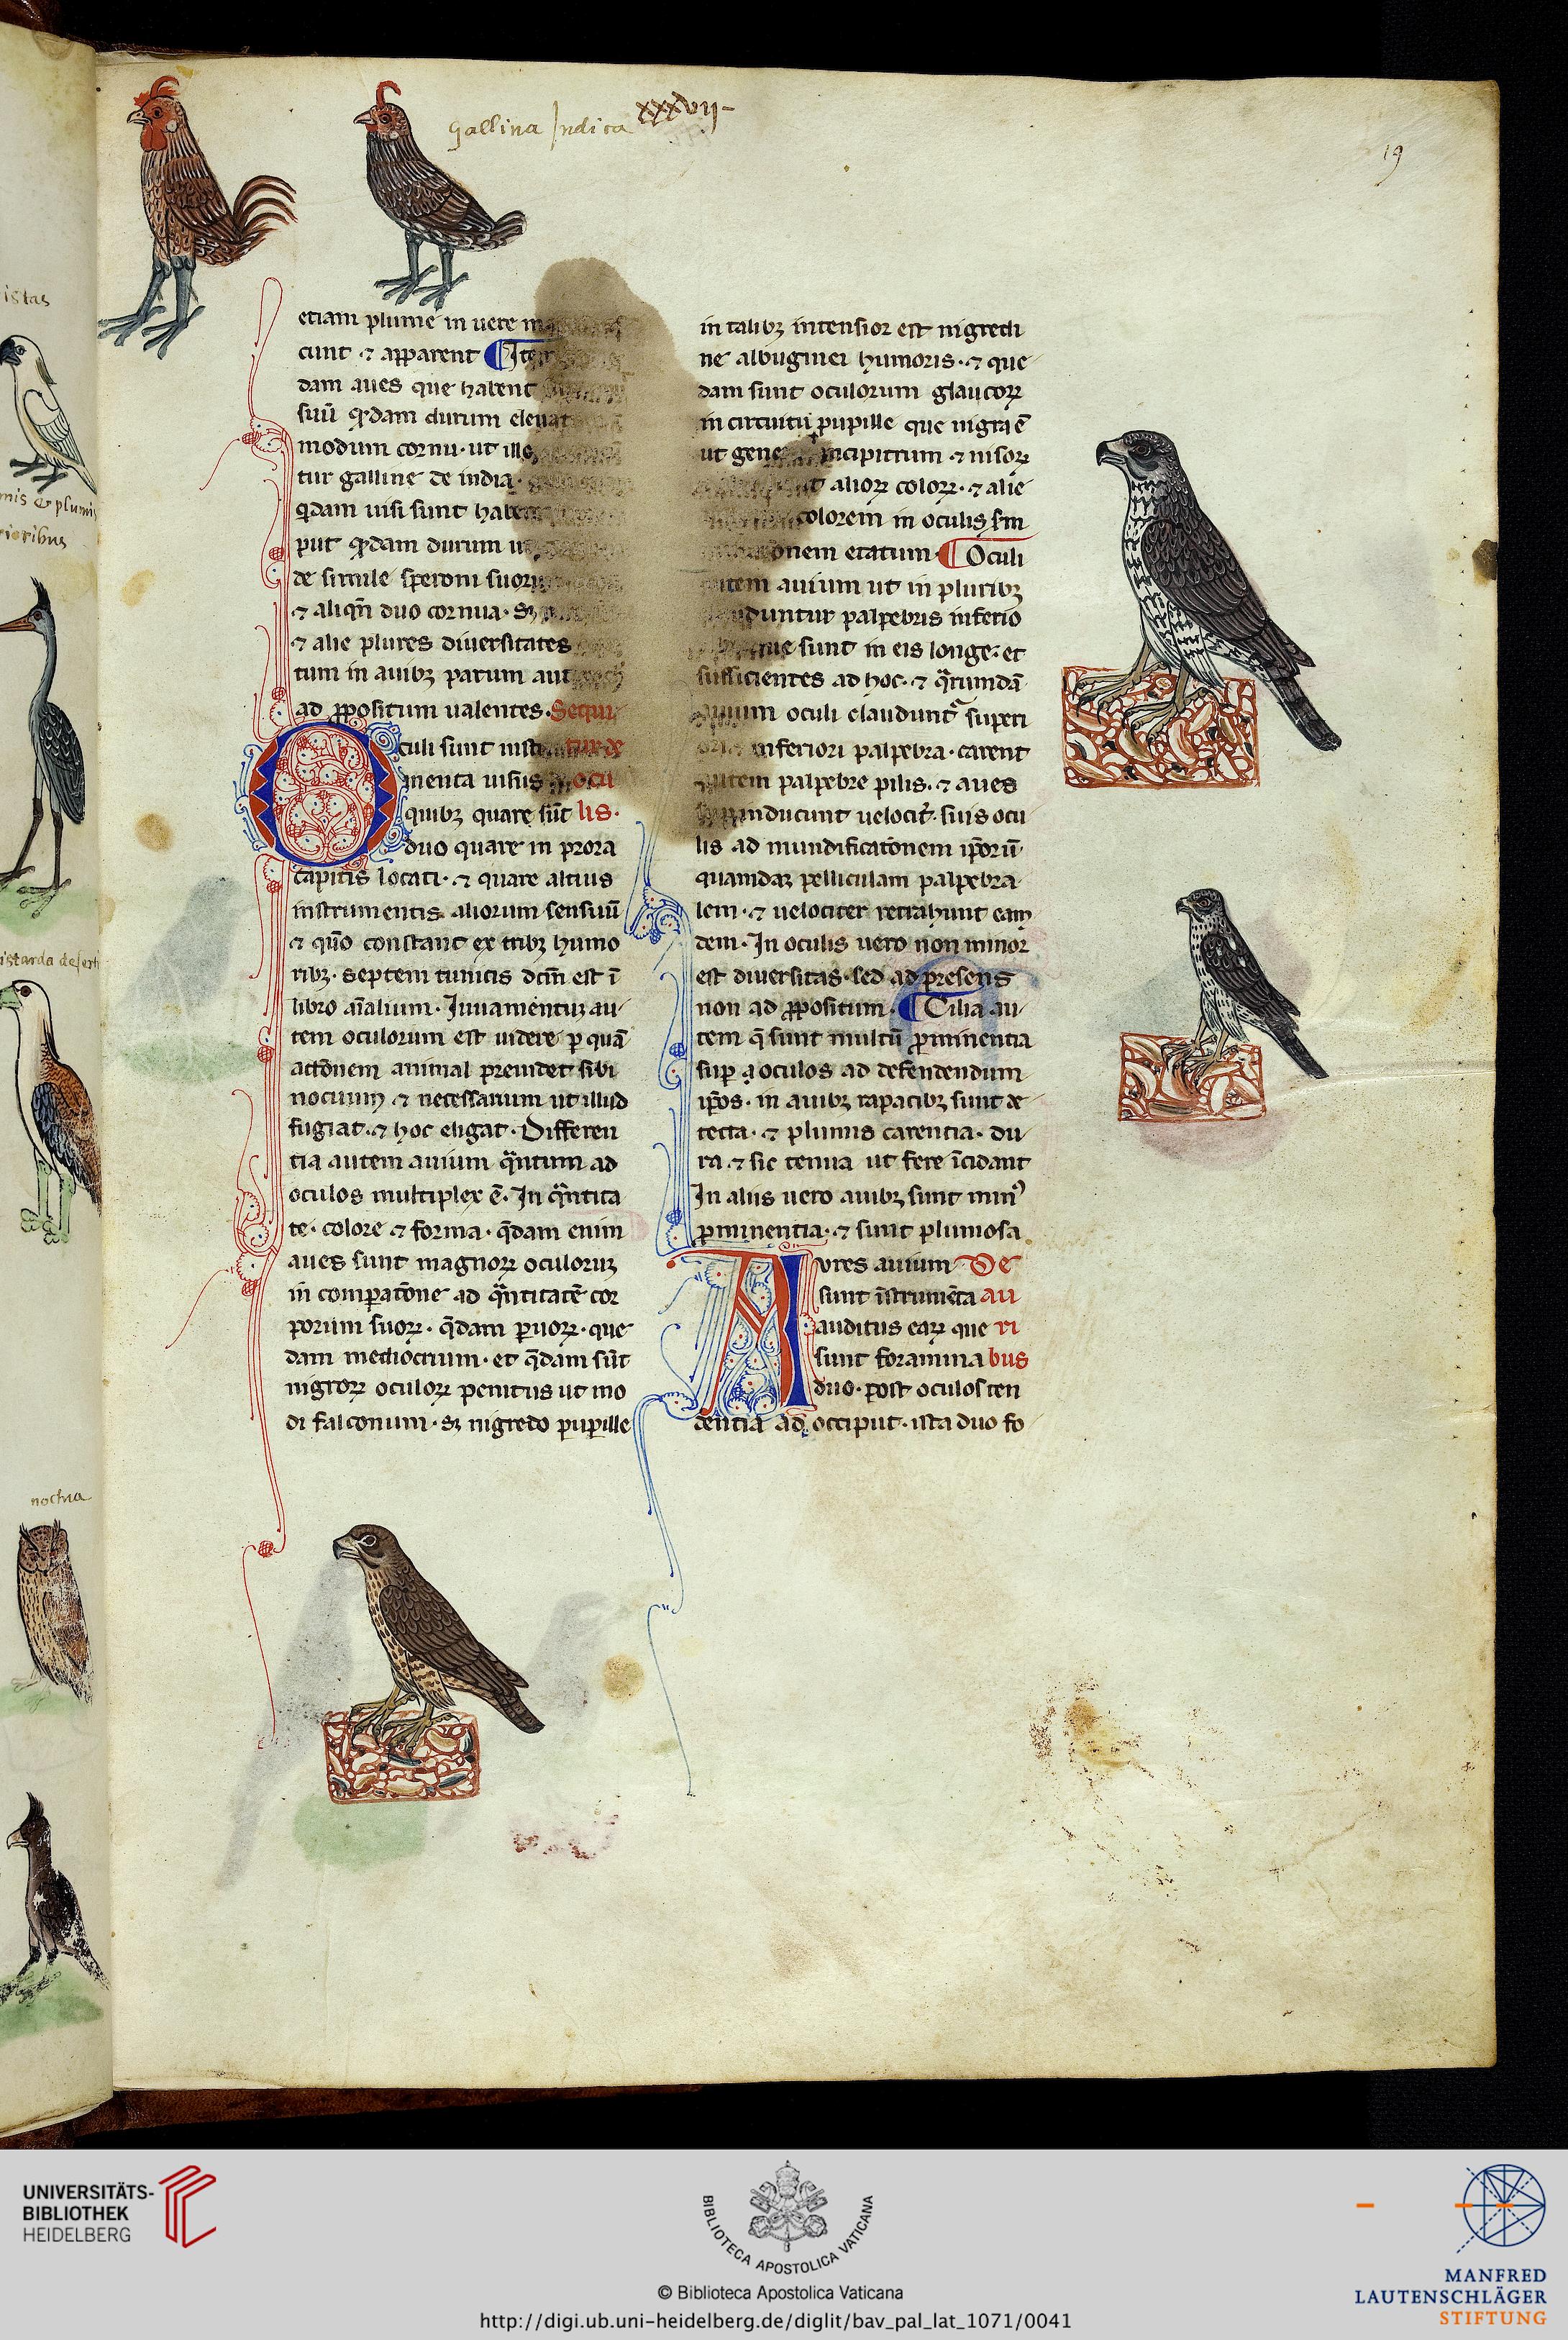 istas
mis & plumis
rioribus
istarda deserti
noctua
Gallina Indica
xxxvij
19
etiam plume in uere
cunt ⁊ apparent
dam aues que habent
suū qͥdam durum eleuat
modum cornu· ut ille
tur galline de india·
qdam uisi sunt habe
put qͥdam durum
de simile speroni suor
⁊ aliqñ duo cornua· sꝫ
⁊ alie plures diuersitates
tum in auibꝫ parum aut
ad ꝓpositum ualentes· Sequi
Oculi sunt inst tur de
menta uisus ocu
quibꝫ quare sūt lis·
duo quare in prora
capitis locati· ⁊ quare altius
instrumentis aliorum sensuū
⁊ quō constant ex tribꝫ humo
ribꝫ· septem tunicis dcm̄ est ī
libro aīalium· Iuuamentuꝫ au
tem oculorum est uidere p quā
actōnem animal preuidet sibi
nociuum ⁊ necessarium ut illud
fugiat· ⁊ hoc eligat· Differen
tia autem auium qͣntum ad
oculos multiplex ē· In qͣntita
te· colore ⁊ forma· qͥdam enim
aues sunt magnoꝝ oculoruꝫ
in compatōne ad qͣntitatē cor
porum suoꝝ· qͥdam puoꝝ· que
dam mediocrium· et qͥdam sūt
nigroꝝ oculoꝝ penitus ut mo
di falconum· sꝫ nigredo pupille
in talibꝫ intensior est nigredi
ne albuginei humoris· ⁊ que
dam sunt oculorum glaucoꝝ
in circuitu pupille que nigra ē
ut gene ancipitrum ⁊ nisoꝝ
alioꝝ coloꝝ· ⁊ alie
colorem in oculis sm
onem etatum· Oculi
autem auium ut in pluribꝫ
uduntur palpebris inferio
que sunt in eis longe· et
sufficientes ad hoc· ⁊ qͣrumdā
auium oculi claudunt super
inferiori palpebra· carent
autem palpebre pilis· ⁊ aues
inducunt uelocit̄· suis ocu
lis ad mundificatōnem ip̄orū
quamdaꝫ pelliculam palpebra
lem· ⁊ uelociter retrahunt eam
dem· In oculis uero non minor
est diuersitas· sed ad presens
non ad ꝓpositum· Cilia au
tem q̄ sunt multū ꝓminentia
sup oculos ad defendendum
ip̄os· in auibꝫ rapacibꝫ sunt de
tecta· ⁊ plumis carentia· du
ra ⁊ sic tenua ut fere īcidant
In aliis uero auibꝫ sunt minꝰ
ꝓminentia· ⁊ sunt plumosa
Aures auium De
sunt īstrumēta au
auditus eaꝝ que ri
sunt foramina bus
duo· post oculos ten
dentia ad occiput· ista duo fo
UNIVERSITÄTS-
BIBLIOTHEK
HEIDELBERG
BIBLIOTECA APOSTOLICA VATICANA
© Biblioteca Apostolica Vaticana
http://digi.ub.uni-heidelberg.de/diglit/bav_pal_lat_1071/0041
MANFRED
LAUTENSCHLÄGER
STIFTUNG